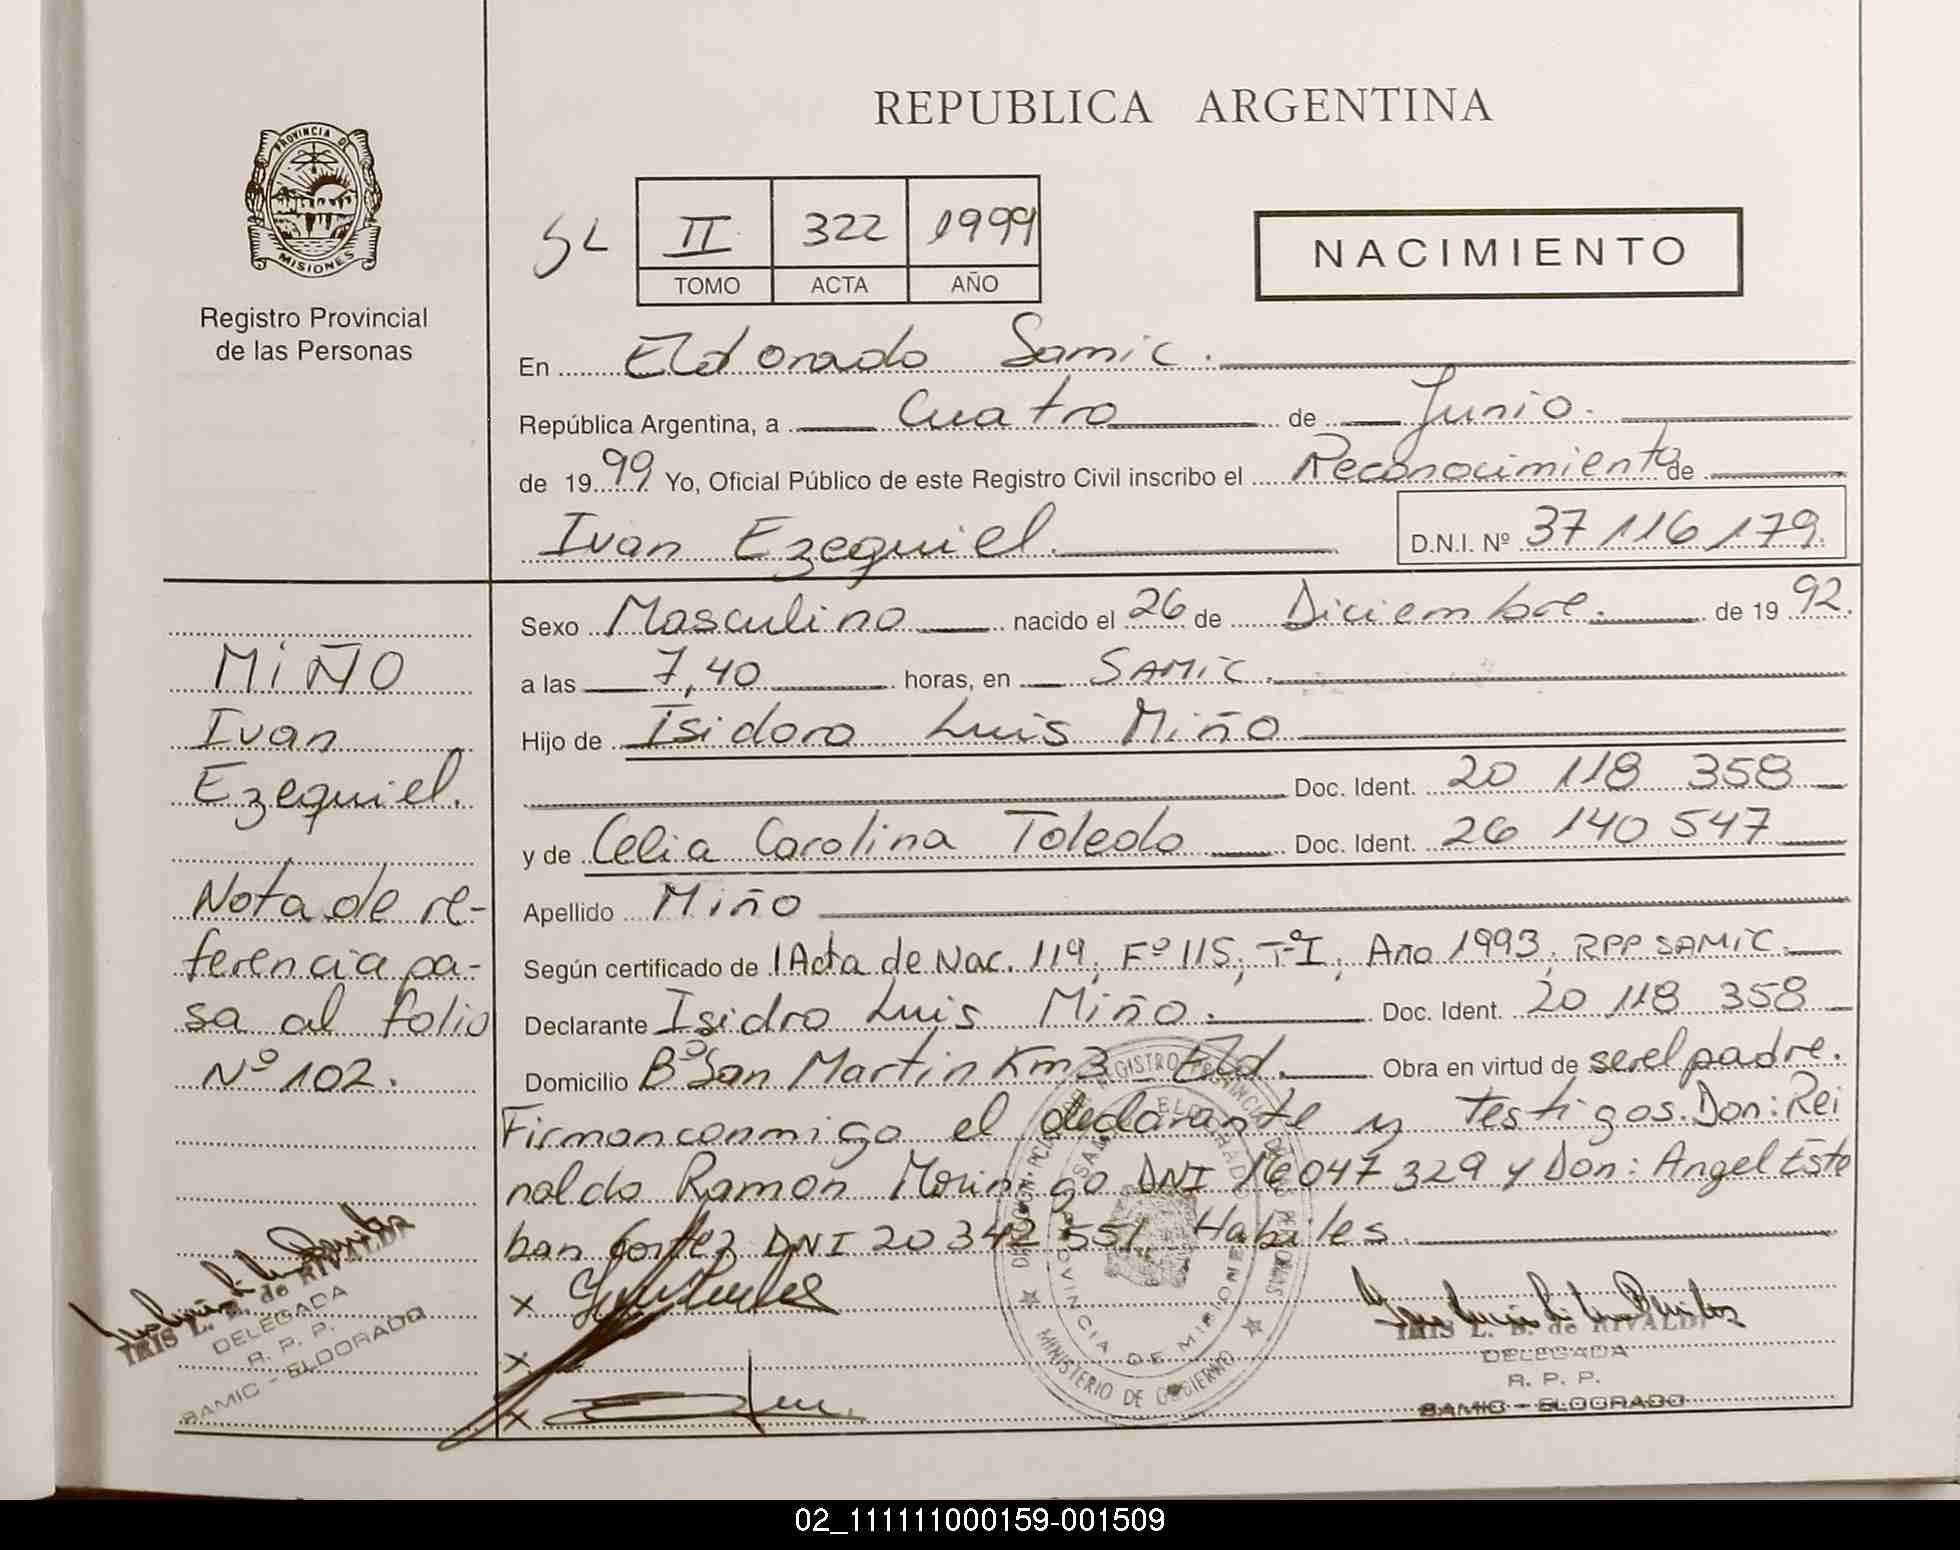 REPUBLICA ARGENTINA
PROVINCIA DE
MISIONES
Registro Provincial
de las Personas
SL II 322 1999
TOMO ACTA AÑO
NACIMIENTO
En Eldorado Samic.
República Argentina, a Cuatro de Junio.
de 1999 Yo, Oficial Público de este Registro Civil inscribo el Reconocimiento de
Ivan Ezequiel. D.N.I. Nº 37 116 179.
Sexo Masculino nacido el 26 de Diciembre. de 19 92.
a las 7,40 horas, en SAMIC.
Hijo de Isidoro Luis Miño
Doc. Ident. 20 118 358
y de Celia Carolina Toledo Doc. Ident. 26 140 547
Apellido Miño
Según certificado de 1 Acta de Nac. 119, Fº 115, Tº I, Año 1993, RPP SAMIC.
Declarante Isidro Luis Miño. Doc. Ident. 20 118 358
Domicilio Bº San Martin Km3 Eld. Obra en virtud de ser el padre.
Firman conmigo el declarante y testigos. Don: Rei
naldo Ramon Morinigo DNI 16 047 329 y Don: Angel Este
ban Cortez DNI 20 342 551, Habiles.
x
x
x
MIÑO
Ivan
Ezequiel.
Nota de re-
ferencia pa-
sa al folio
Nº 102.
IRIS L. B. de RIVALDI
DELEGADA
R. P. P.
SAMIC - ELDORADO
REGISTRO PROVINCIAL DE LAS PERSONAS
MINISTERIO DE GOBIERNO
SAMIC ELDORADO
PROVINCIA DE MISIONES
IRIS L. B. de RIVALDI
DELEGADA
R. P. P.
SAMIC - ELDORADO
02_111111000159-001509